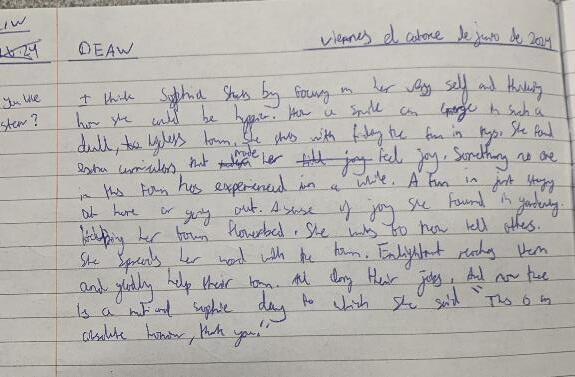 DEAW
viernes el catorce de junio de 2024
you like
I think Sophia starts by focusing on her self and thinking
how she could be happier. How a smile can emerge in such a
dull, too lifeless town. She starts with finding the fun in. She found
extra curriculars that made her feel joy. Something no one
in this town has experienced in a while. A fun in just staying
at home or going out. A sense of joy she found in gardening.
her town flowerbed. She wants to now tell others.
She spreads her word with the town. reaches them
and gladly help their town. All doing their jobs, And now there
is a national sophie day to which she said "This is an
absolute honour, thank you."